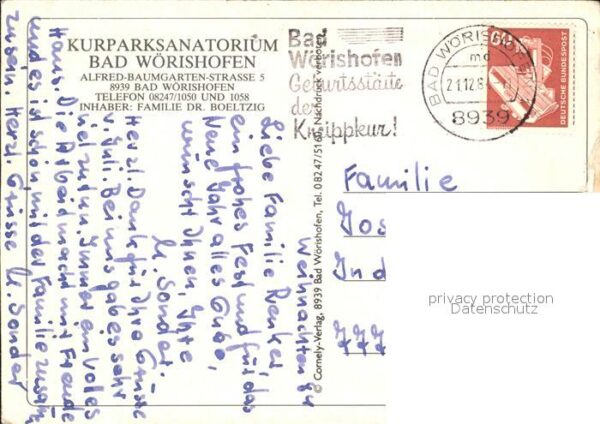 KURPARKSANATORIUM
BAD WÖRISHOFEN
ALFRED-BAUMGARTEN-STRASSE 5
8939 BAD WÖRISHOFEN
TELEFON 08247/1050 UND 1058
INHABER: FAMILIE DR. BOELTZIG
Bad
Wörishofen
Geburtsstätte
der
Kneippkur!
BAD WÖRISHOFEN
md
21.12.8
8939
60
DEUTSCHE BUNDESPOST
© Cornely-Verlag, 8939 Bad Wörishofen, Tel. 08247/5160, Nachdruck verboten
Weihnachten
Liebe Familie Renker,
ein frohes Fest und für das
Neue Jahr alles Gute,
wünscht Ihnen, Ihre
U. Sonder
Herzl. Dank für Ihre Grüsse
v. Juli. Bei uns gab es sehr
viel zu tun. Immer ein volles
Haus. Die Arbeit macht mir Freude
und es ist schön mit der Familie zusam
zu sein. Herzl. Grüsse U. Sonder
Familie
Jos
Ind
privacy protection
Datenschutz